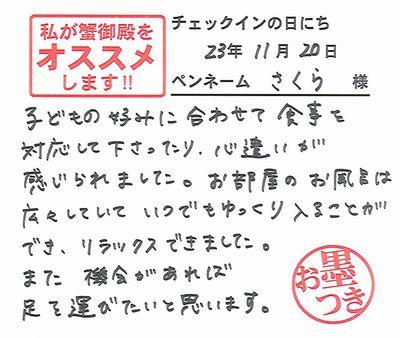 私が蟹御殿を
オススメ
します!!
チェックインの日にち
23年 11月 20日
ペンネーム さくら 様
子どもの好みに合わせて食事を
対応して下さったり、心遣いが
感じられました。お部屋のお風呂は
広々していていつでもゆっくり入ることが
でき、リラックスできました。
また 機会があれば
足を運びたいと思います。
お墨つき